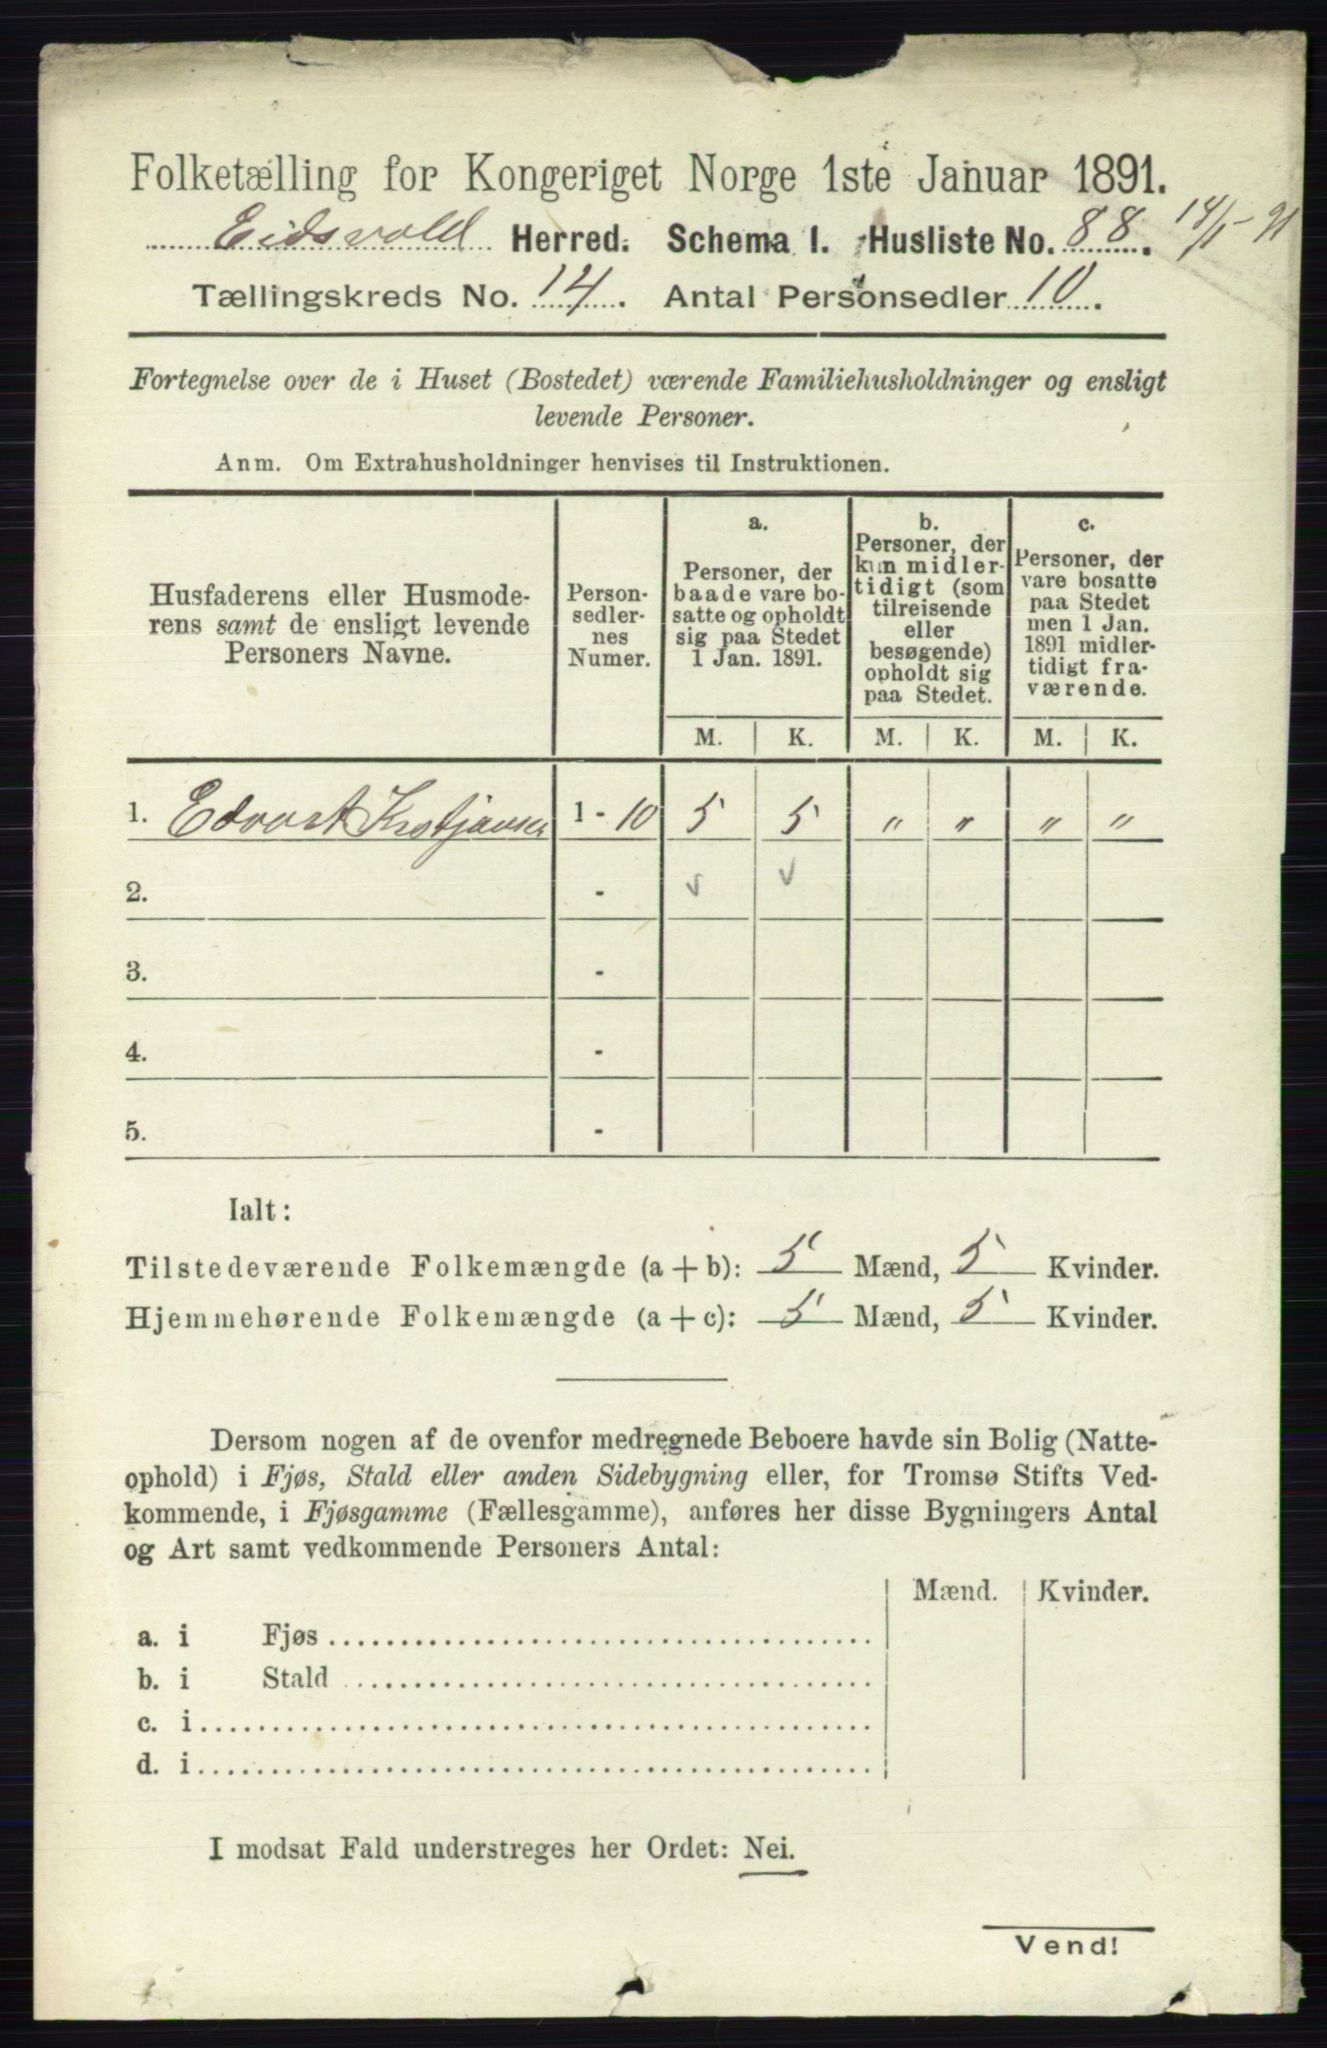 Folketælling for Kongeriget Norge 1ste Januar 1891.
Eidsvold Herred. Schema 1. Husliste No. 88. 14/1-91
Tællingskreds No. 14. Antal Personsedler 10.
Fortegnelse over de i Huset (Bostedet) værende Familiehusholdninger og ensligt
levende Personer.
Anm. Om Extrahusholdninger henvises til Instruktionen.
Husfaderens eller Husmode-
rens samt de ensligt levende
Personers Navne.
Person-
sedler-
nes
Numer.
a.
Personer, der
baade vare bo-
satte og opholdt
sig paa Stedet
1 Jan. 1891.
b.
Personer, der
kun midler-
tidigt (som
tilreisende
eller
besøgende)
opholdt sig
paa Stedet.
c.
Personer, der
vare bosatte
paa Stedet
men 1 Jan.
1891 midler-
tidigt fra-
værende.
M. K. M. K. M. K.
1. Edvart 1 - 10 5 5 " " " "
2. - v v
3. -
4. -
5. -
Ialt:
Tilstedeværende Folkemængde (a + b): 5 Mænd, 5 Kvinder.
Hjemmehørende Folkemængde (a + c): 5 Mænd, 5 Kvinder.
Dersom nogen af de ovenfor medregnede Beboere havde sin Bolig (Natte-
ophold) i Fjøs, Stald eller anden Sidebygning eller, for Tromsø Stifts Ved-
kommende, i Fjøsgamme (Fællesgamme), anføres her disse Bygningers Antal
og Art samt vedkommende Personers Antal:
Mænd. Kvinder.
a. i Fjøs
b. i Stald
c. i
d. i
I modsat Fald understreges her Ordet: Nei.
Vend!